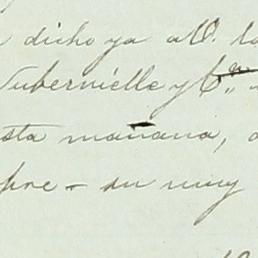 dicho ya a V. la
Dubernielle y C.ª
sta mañana,
pre - su muy